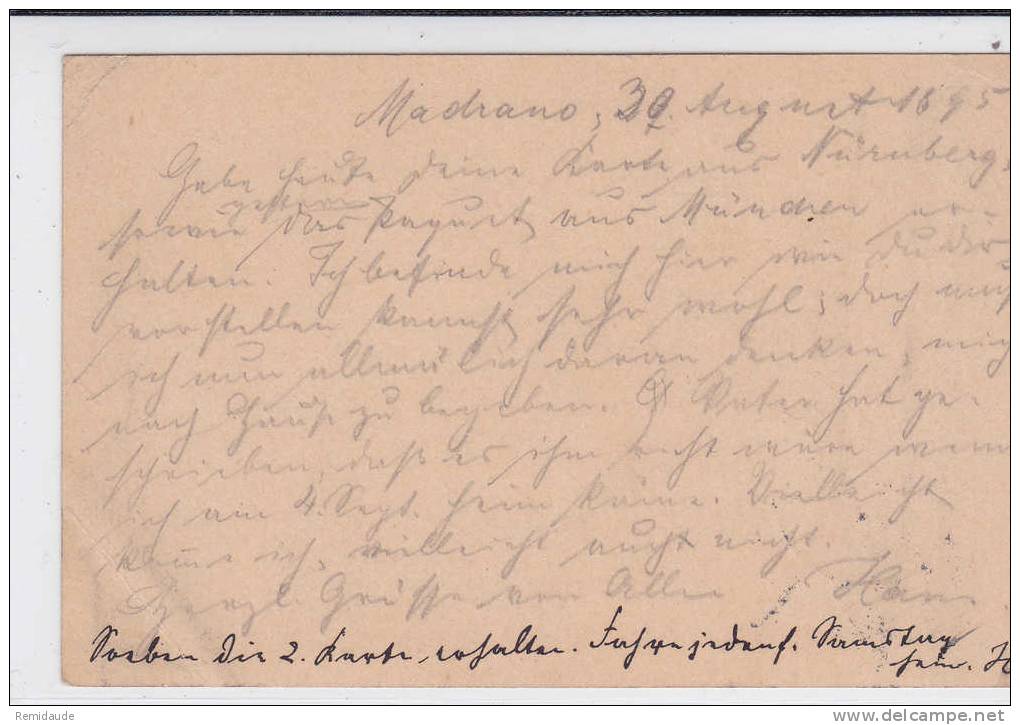 Madrano, 30. August 1895
Habe heute deine Karte aus Nürnberg,
gestern
sowie das Paquet aus München er-
halten. Ich befinde mich hier wie Du dir
vorstellen kannst sehr wohl; doch muß
ich nun allmälich daran denken, mich
nach Hause zu begeben. Vater hat ge-
schrieben, daß es ihm recht wäre wenn
ich am 4. Sept. heim käme. Vielleicht
kome ich, vielleicht auch nicht.
Herzl. Grüsse von Allen Hans.
Soeben die 2. Karte erhalten. Fahre jedenf. Samstag
heim. H
Remidaude
www.delcampe.net